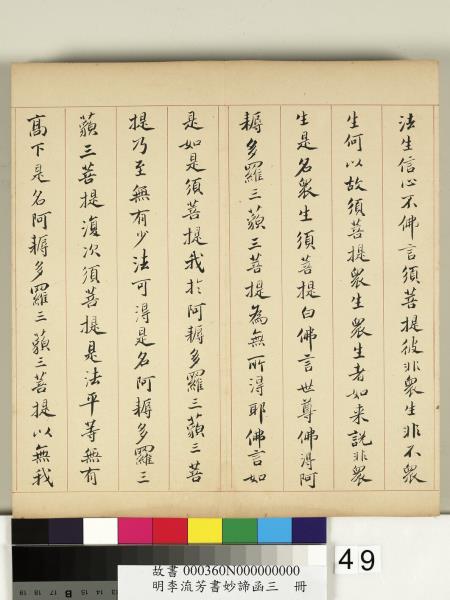 法生信心不佛言須菩提彼非衆生非不衆
生何以故須菩提衆生衆生者如来說非衆
生是名衆生須菩提白佛言世尊佛得阿
耨多羅三藐三菩提為無所得耶佛言如
是如是須菩提我於阿耨多羅三藐三菩
提乃至無有少法可得是名阿耨多羅三
藐三菩提復次須菩提是法平等無有
高下是名阿耨多羅三藐三菩提以無我
49
故書 000360N000000000
明李流芳書妙諦函三 冊